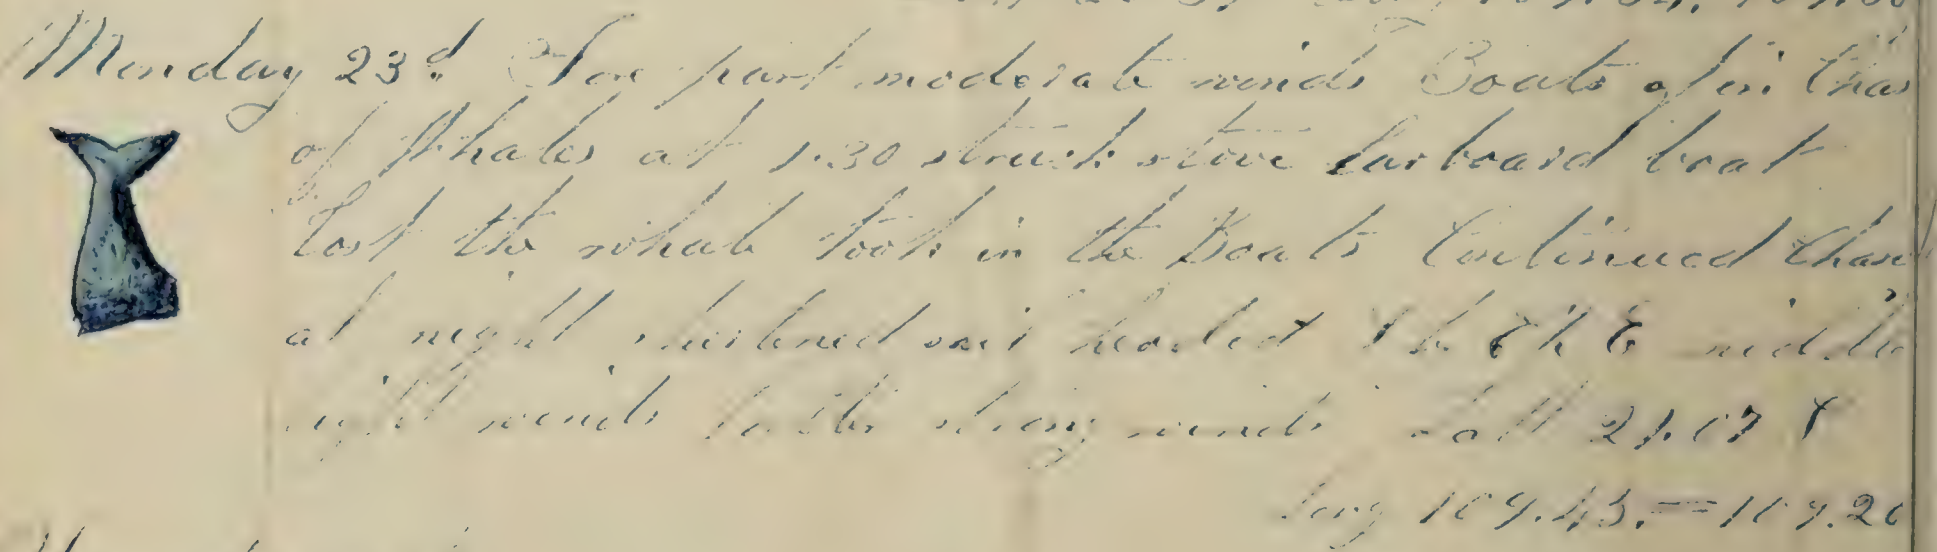 Monday 23d Fore part moderate winds Boats of in Chas
of Whales at 1.30 struck stove Larboard boat
Lost the whale took in the Boats Continued Chase
at night shortened sail headed E middle
light winds latter strong winds Latt 21.07
Long 109.43. = 109.20